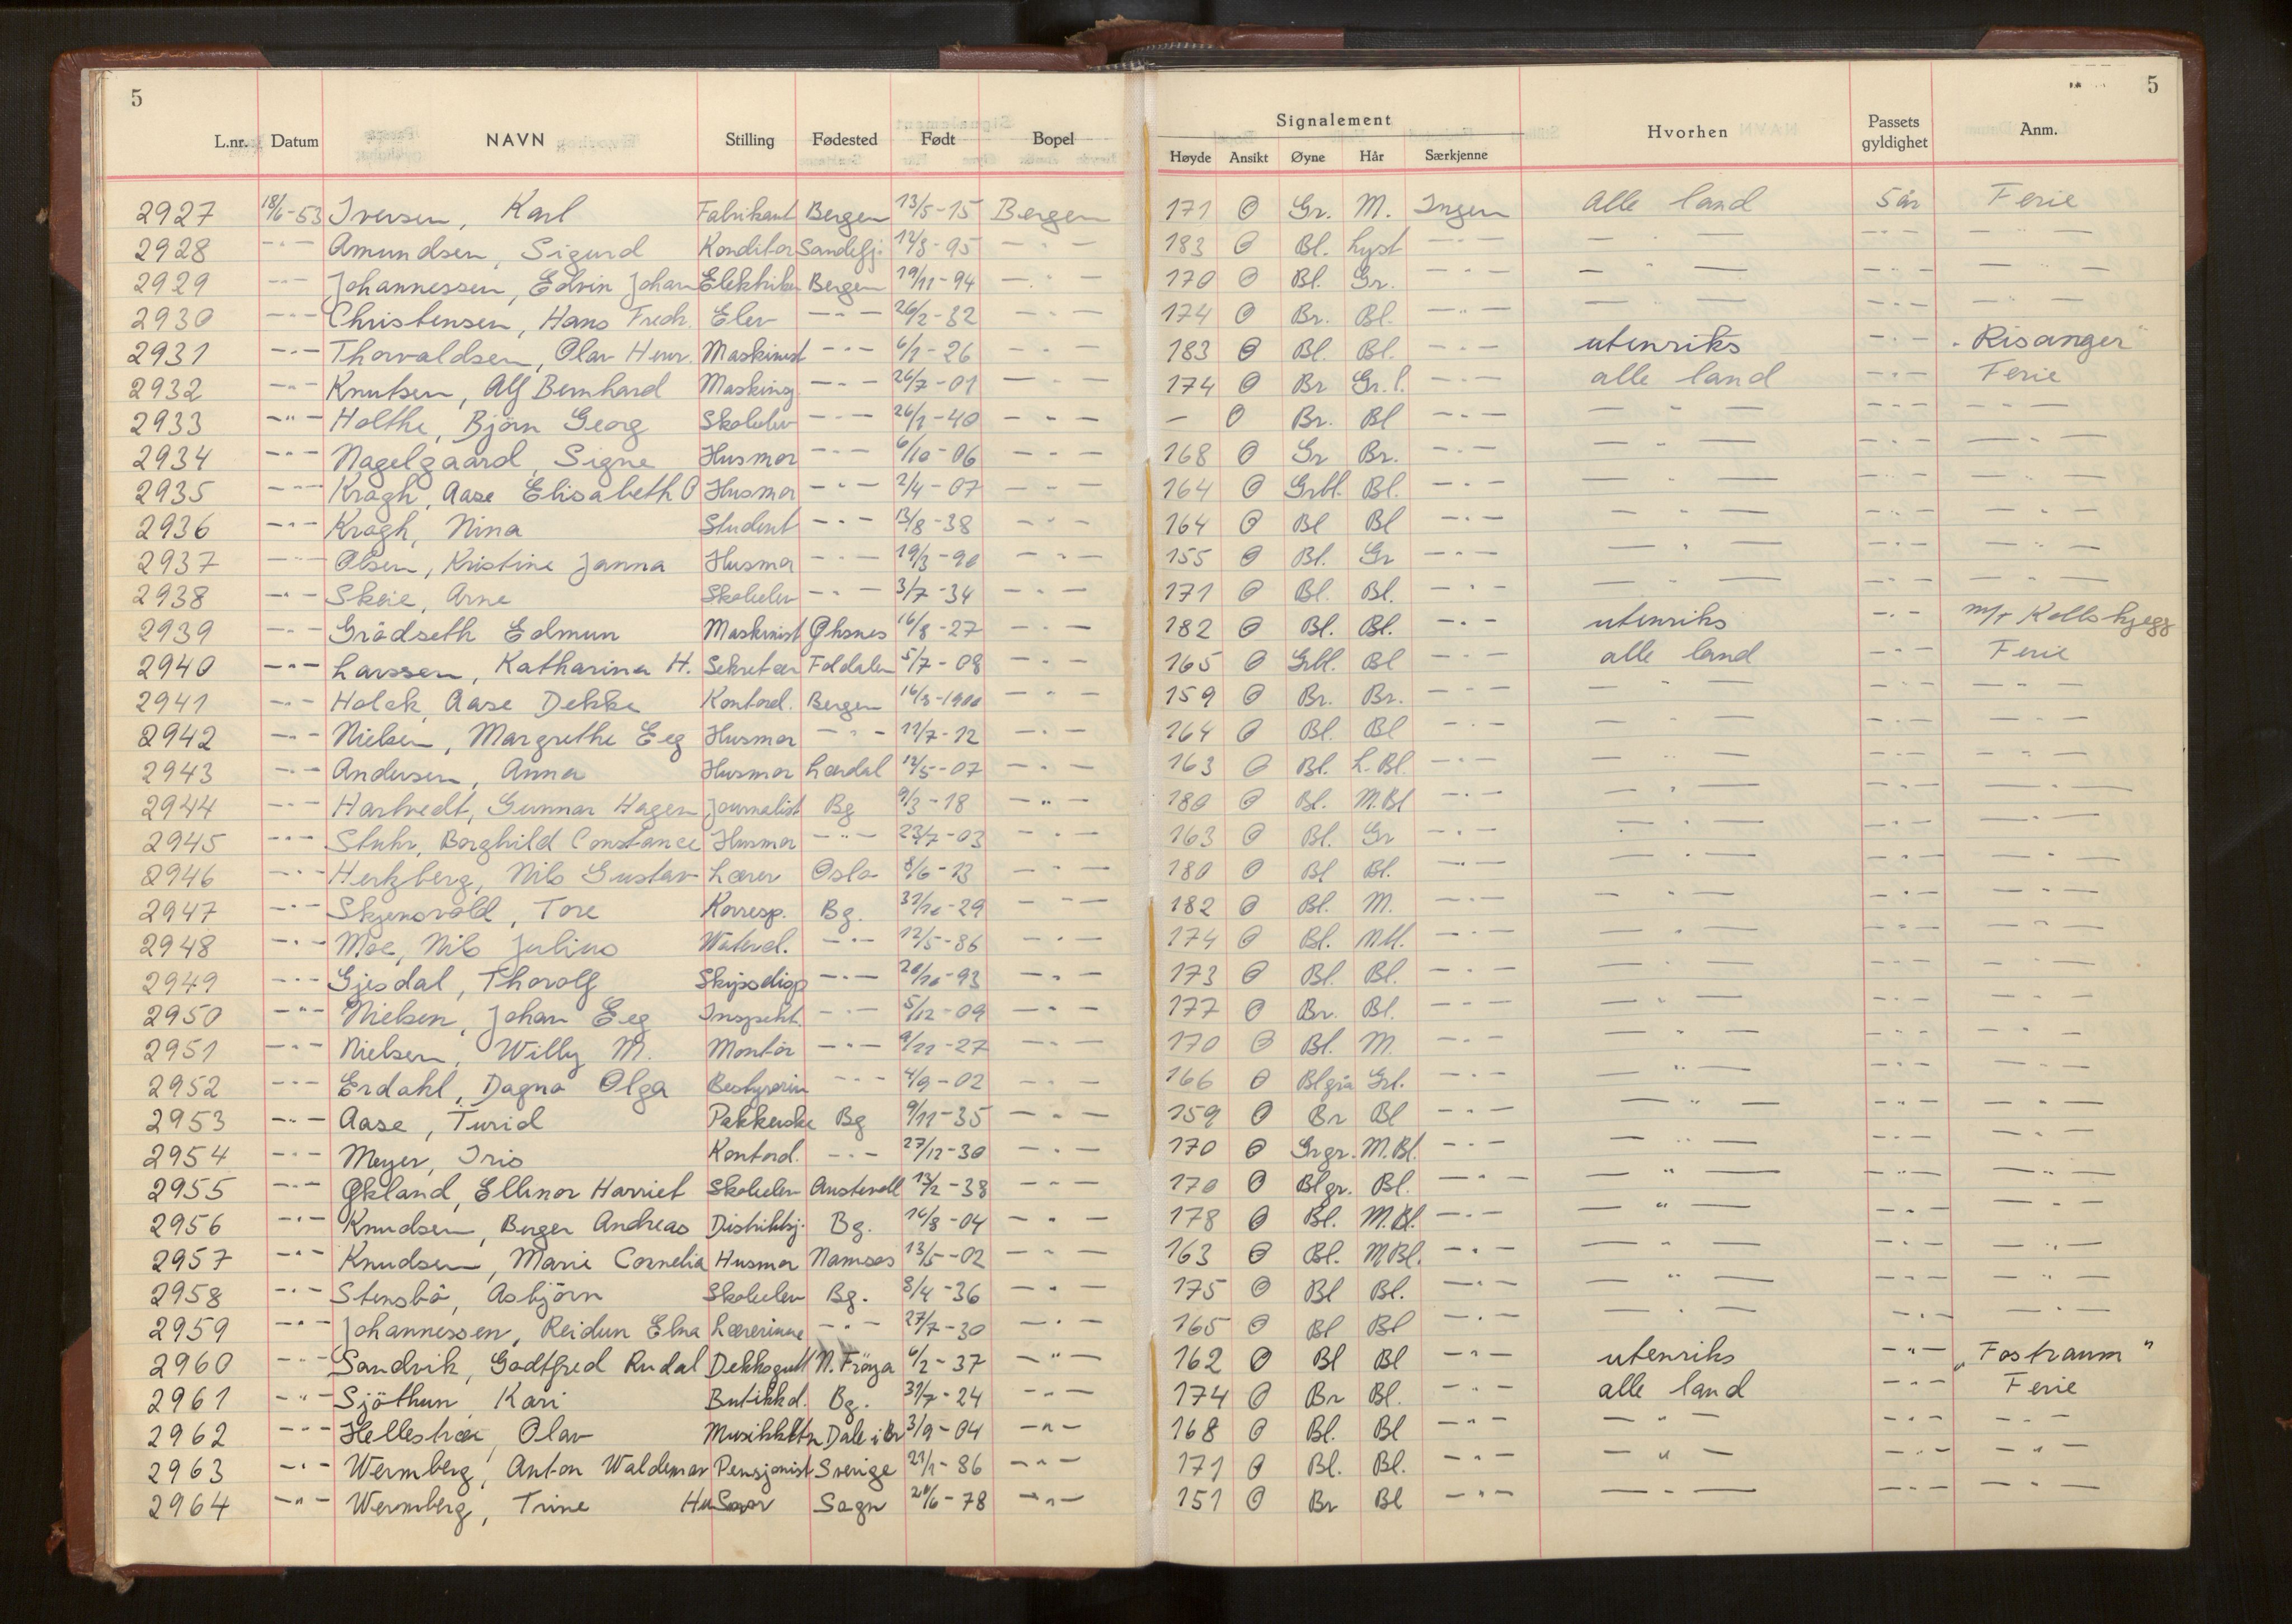 5
5
Signalement
L.nr. Datum NAVN Stilling Fødested Født Bopel Høyde Ansikt Øyne Hår Særkjenne Hvorhen Passets gyldighet Anm.
2927 18/6-53 Iversen, Karl Fabrikant Bergen 13/5-15 Bergen 171 O Gr. M. Ingen Alle land 5 år Ferie
2928 -"- Amundsen, Sigurd Konditor Sandefj. 12/8-95 -"- 183 O Bl. Lyst -"- -"- -"- -"-
2929 -"- Johannessen, Edvin Johan Elektriker Bergen 19/11-94 -"- 170 O Bl. Gr. -"- -"- -"- -"-
2930 -"- Christensen, Hans Fredr. Elev -"- 26/2-32 -"- 174 O Br. Bl. -"- -"- -"- -"-
2931 -"- Thorvaldsen, Olav Henr. Maskinist -"- 6/1-26 -"- 183 O Bl. Bl. -"- utenriks -"- "Risanger"
2932 -"- Knutsen, Alf Bernhard Masking. -"- 26/7-01 -"- 174 O Br Gr.l. -"- alle land -"- Ferie
2933 -"- Holthe, Björn Georg Skoleelev -"- 26/1-40 -"- - O Br. Bl -"- -"- -"- -"-
2934 -"- Nagelgaard, Signe Husmor -"- 6/10-06 -"- 168 O Gr Br. -"- -"- -"- -"-
2935 -"- Kragh, Aase Elisabeth O Husmor -"- 2/4-07 -"- 164 O Grbl. Bl. -"- -"- -"- -"-
2936 -"- Kragh, Nina Student -"- 13/8-38 -"- 164 O Bl Bl -"- -"- -"- -"-
2937 -"- Olsen, Kristine Janna Husmor -"- 19/3-90 -"- 155 O Bl. Gr -"- -"- -"- -"-
2938 -"- Skeie, Arne Skoleelev -"- 3/7-34 -"- 171 O Bl. Bl. -"- -"- -"- -"-
2939 -"- Grödseth Edmun Maskinist Øksnes 16/8-27 -"- 182 O Bl. Bl. -"- utenriks -"- m/T Kollskjegg
2940 -"- Larssen, Katharina H. Sekretær Foldalen 5/7-08 -"- 165 O Grbl. Bl -"- alle land -"- Ferie
2941 -"- Holck, Aase Dekke Kontord. Bergen 16/3-1900 -"- 159 O Br. Br. -"- -"- -"- -"-
2942 -"- Nielsen, Margrethe Eeg Husmor -"- 11/7-12 -"- 164 O Bl. Bl -"- -"- -"- -"-
2943 -"- Andersen, Anna Husmor Lærdal 12/5-07 -"- 163 O Bl. L.Bl. -"- -"- -"- -"-
2944 -"- Hartvedt, Gunnar Hagen Journalist Bg 9/3-18 -"- 180 O Bl. M.Bl -"- -"- -"- -"-
2945 -"- Stuhr, Borghild Constance Husmor -"- 23/7-03 -"- 163 O Bl. Gr -"- -"- -"- -"-
2946 -"- Hertzberg, Nils Gustav Lærer Oslo 8/6-13 -"- 180 O Bl Bl. -"- -"- -"- -"-
2947 -"- Skjensvold, Tore Korresp. Bg. 31/10-29 -"- 182 O Bl. M. -"- -"- -"- -"-
2948 -"- Moe, Nils Julius -"- 12/5-86 -"- 174 O Bl. -"- -"- -"- -"-
2949 -"- Gjesdal, Thorolf Skipsdisp -"- 20/10-93 -"- 173 O Bl. Bl. -"- -"- -"- -"-
2950 -"- Nielsen, Johan Eeg Inspekt. -"- 5/12-09 -"- 177 O Br. Bl. -"- -"- -"- -"-
2951 -"- Nielsen, Willy M. Montör -"- 9/11-27 -"- 170 O Bl. M. -"- -"- -"- -"-
2952 -"- Erdahl, Dagna Olga Bestyrerin -"- 4/9-02 -"- 166 O Blgrå Grl. -"- -"- -"- -"-
2953 -"- Aase, Turid Pakkerske Bg 9/11-35 -"- 159 O Br Bl -"- -"- -"- -"-
2954 -"- Meyer, Iris Kontord. -"- 27/12-30 -"- 170 O Grgr. M.Bl. -"- -"- -"- -"-
2955 -"- Økland, Ellinor Harriet Skoleelev Austevoll 13/2-38 -"- 170 O Blgr. Bl. -"- -"- -"- -"-
2956 -"- Knudsen, Berger Andreas Distriktsj. Bg. 16/8-04 -"- 178 O Bl. M.Bl. -"- -"- -"- -"-
2957 -"- Knudsen, Marie Cornelia Husmor Namsos 13/5-02 -"- 163 O Bl. M Bl. -"- -"- -"- -"-
2958 -"- Stensbö, Asbjörn Skoleelev Bg. 8/4-36 -"- 175 O Bl Bl. -"- -"- -"- -"-
2959 -"- Johannessen, Reidun Elna Lærerinne -"- 27/7-30 -"- 165 O Bl Bl -"- -"- -"- -"-
2960 -"- Sandvik, Godtfred Rudal Dekksgutt N. Fröya 6/2-37 -"- 162 O Bl Bl -"- utenriks -"- "Fostraum"
2961 -"- Sjöthun, Kari Butikkd. Bg. 31/7-24 -"- 174 O Br Bl. -"- alle land -"- Ferie
2962 -"- Hellestræ, Olav Dale i 3/9-04 -"- 168 O Bl. Bl -"- -"- -"- -"-
2963 -"- Wermberg, Anton Waldemar Pensjonist Sverige 21/1-86 -"- 171 O Bl. Bl. -"- -"- -"- -"-
2964 -"- Wermberg, Trine Husmor Sogn 20/6-78 -"- 151 O Br Bl -"- -"- -"- -"-